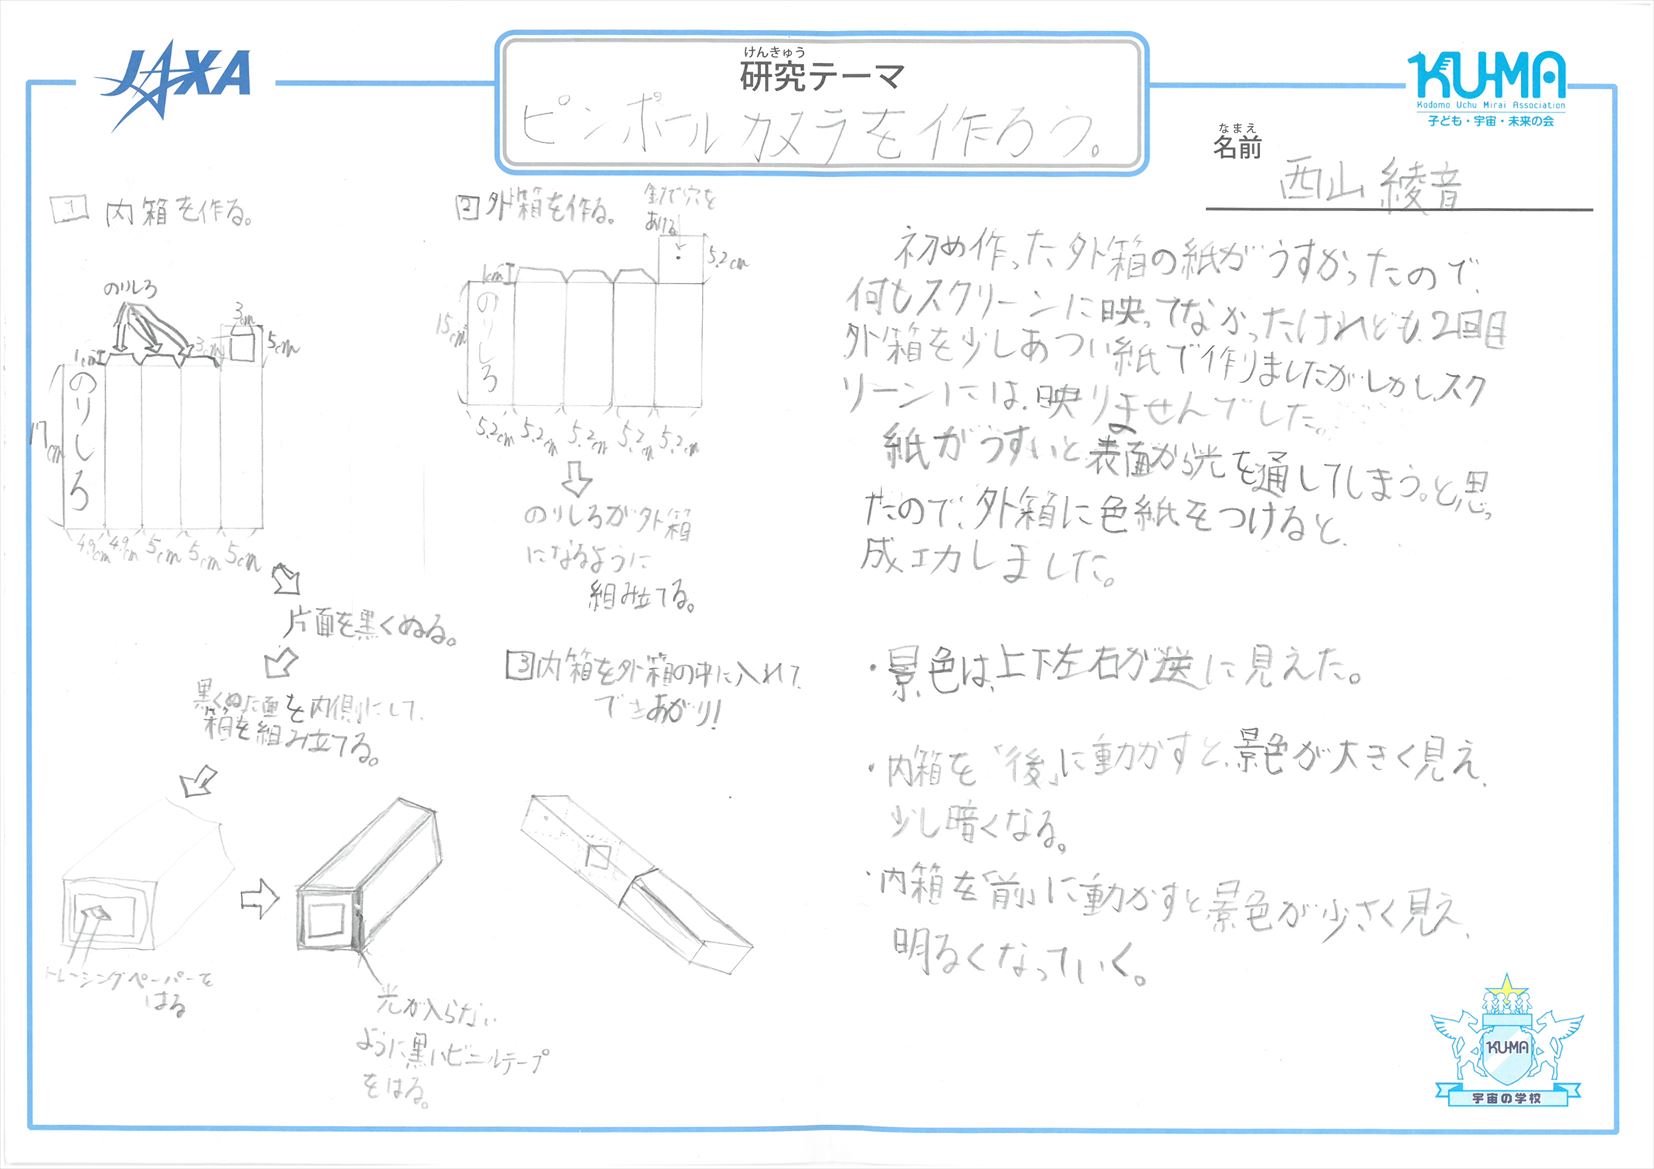 JAXA
けんきゅう
研究テーマ
ピンホールカメラを作ろう。
KU-MA
Kodomo Uchu Mirai Association
子ども・宇宙・未来の会
なまえ
名前
西山 綾音
1 内箱を作る。
のりしろ
3cm
3cm
5cm
1cm
のりしろ
17cm
4.9cm 4.9cm 5cm 5cm 5cm
片面を黒くぬる。
黒くぬった面を内側にして、
箱を組み立てる。
トレーシングペーパーを
はる
光が入らない
ように黒いビニールテープ
をはる。
2 外箱を作る。
針で穴を
あける
5.2cm
1cm
のりしろ
15cm
5.2cm 5.2cm 5.2cm 5.2cm 5.2cm
のりしろが外箱
になるように
組み立てる。
3 内箱を外箱の中に入れて、
できあがり!
初め作った外箱の紙がうすかったので、
何もスクリーンに映ってなかったけれども、2回目
外箱を少しあつい紙で作りましたが、しかし、スク
リーンには、映りませんでした。
紙がうすいと、表面から光を通してしまう。と、思っ
たので、外箱に色紙をつけると、
成功しました。
・景色は、上下左右が逆に見えた。
・内箱を「後」に動かすと、景色が大きく見え、
少し暗くなる。
・内箱を「前」に動かすと、景色が少さく見え、
明るくなっていく。
KU-MA
宇宙の学校